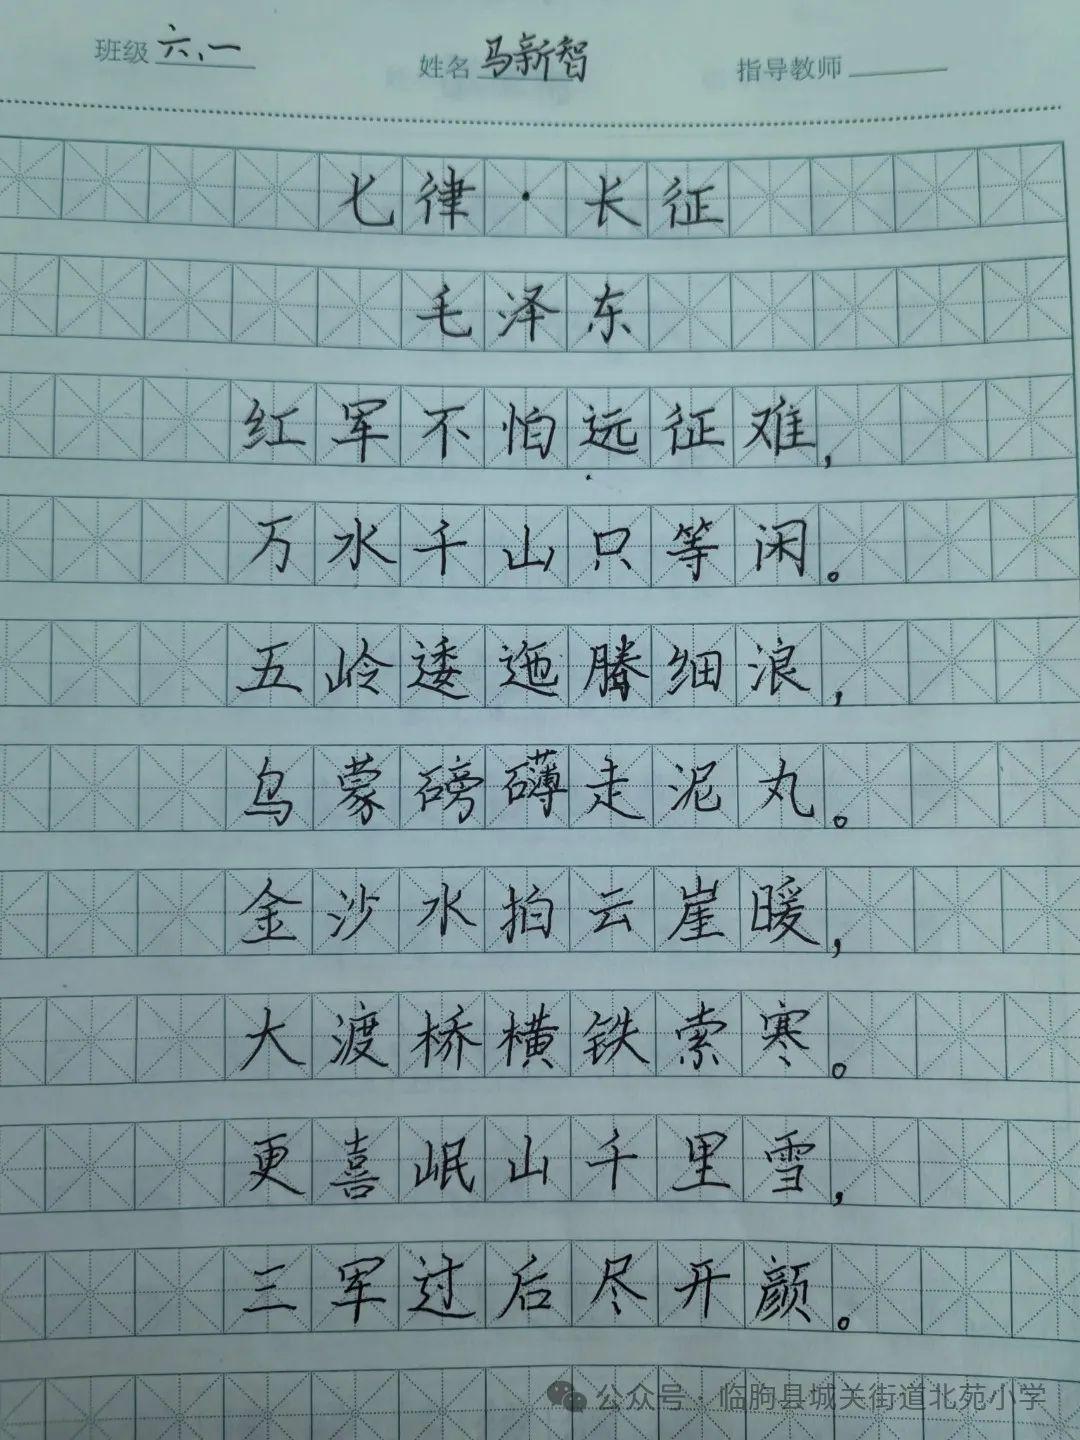 班级 六、一 姓名 马新智 指导教师
七律·长征
毛泽东
红军不怕远征难，
万水千山只等闲。
五岭逶迤腾细浪，
乌蒙磅礴走泥丸。
金沙水拍云崖暖，
大渡桥横铁索寒。
更喜岷山千里雪，
三军过后尽开颜。
公众号·临朐县城关街道北苑小学